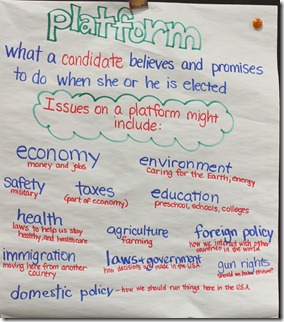 platform
what a candidate believes and promises
to do when she or he is elected
Issues on a platform might
include:
economy
money and jobs
environment
caring for the Earth, energy
safety
military
taxes
(part of economy)
education
preschool, schools, colleges
health
laws to help us stay
healthy, and healthcare
agriculture
farming
foreign policy
how we interact with other
countries in the world
immigration
moving here from another
country
laws + government
how decisions are made in the U.S.A.
gun rights
should we have them?
domestic policy - how we should run things here in the U.S.A.